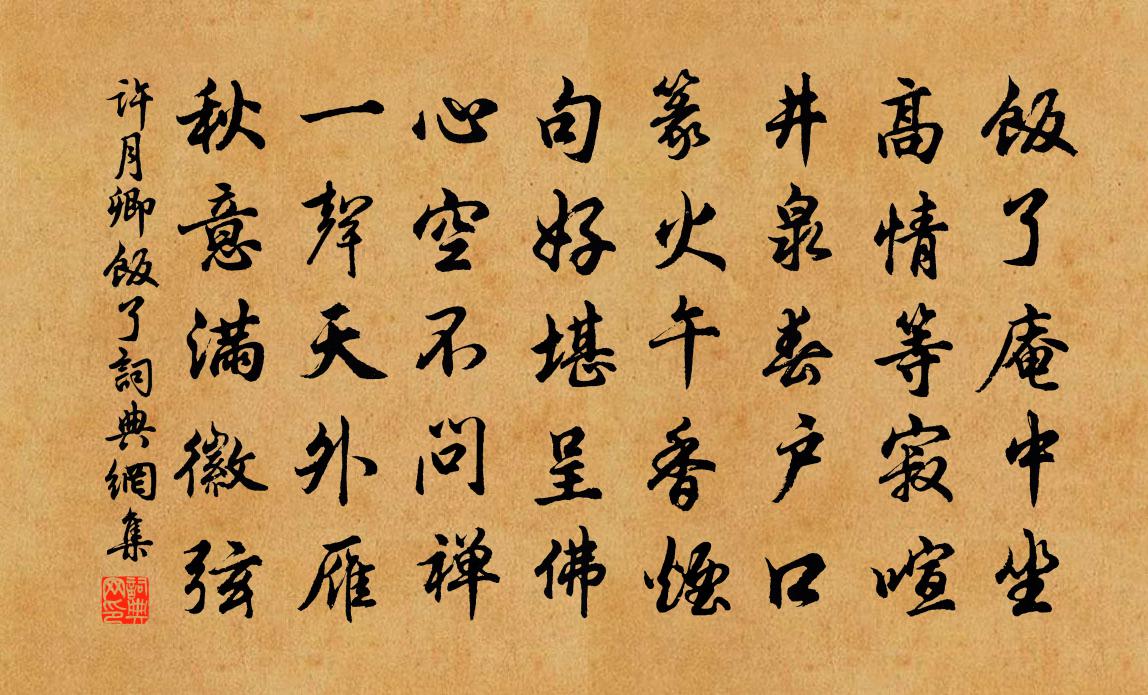 飯了庵中坐
高情等寂喧
井泉春户口
篆火午香煙
句好堪呈佛
心空不問禅
一聲天外雁
秋意滿徽弦
許月卿飯了詞典網集
詞典网印